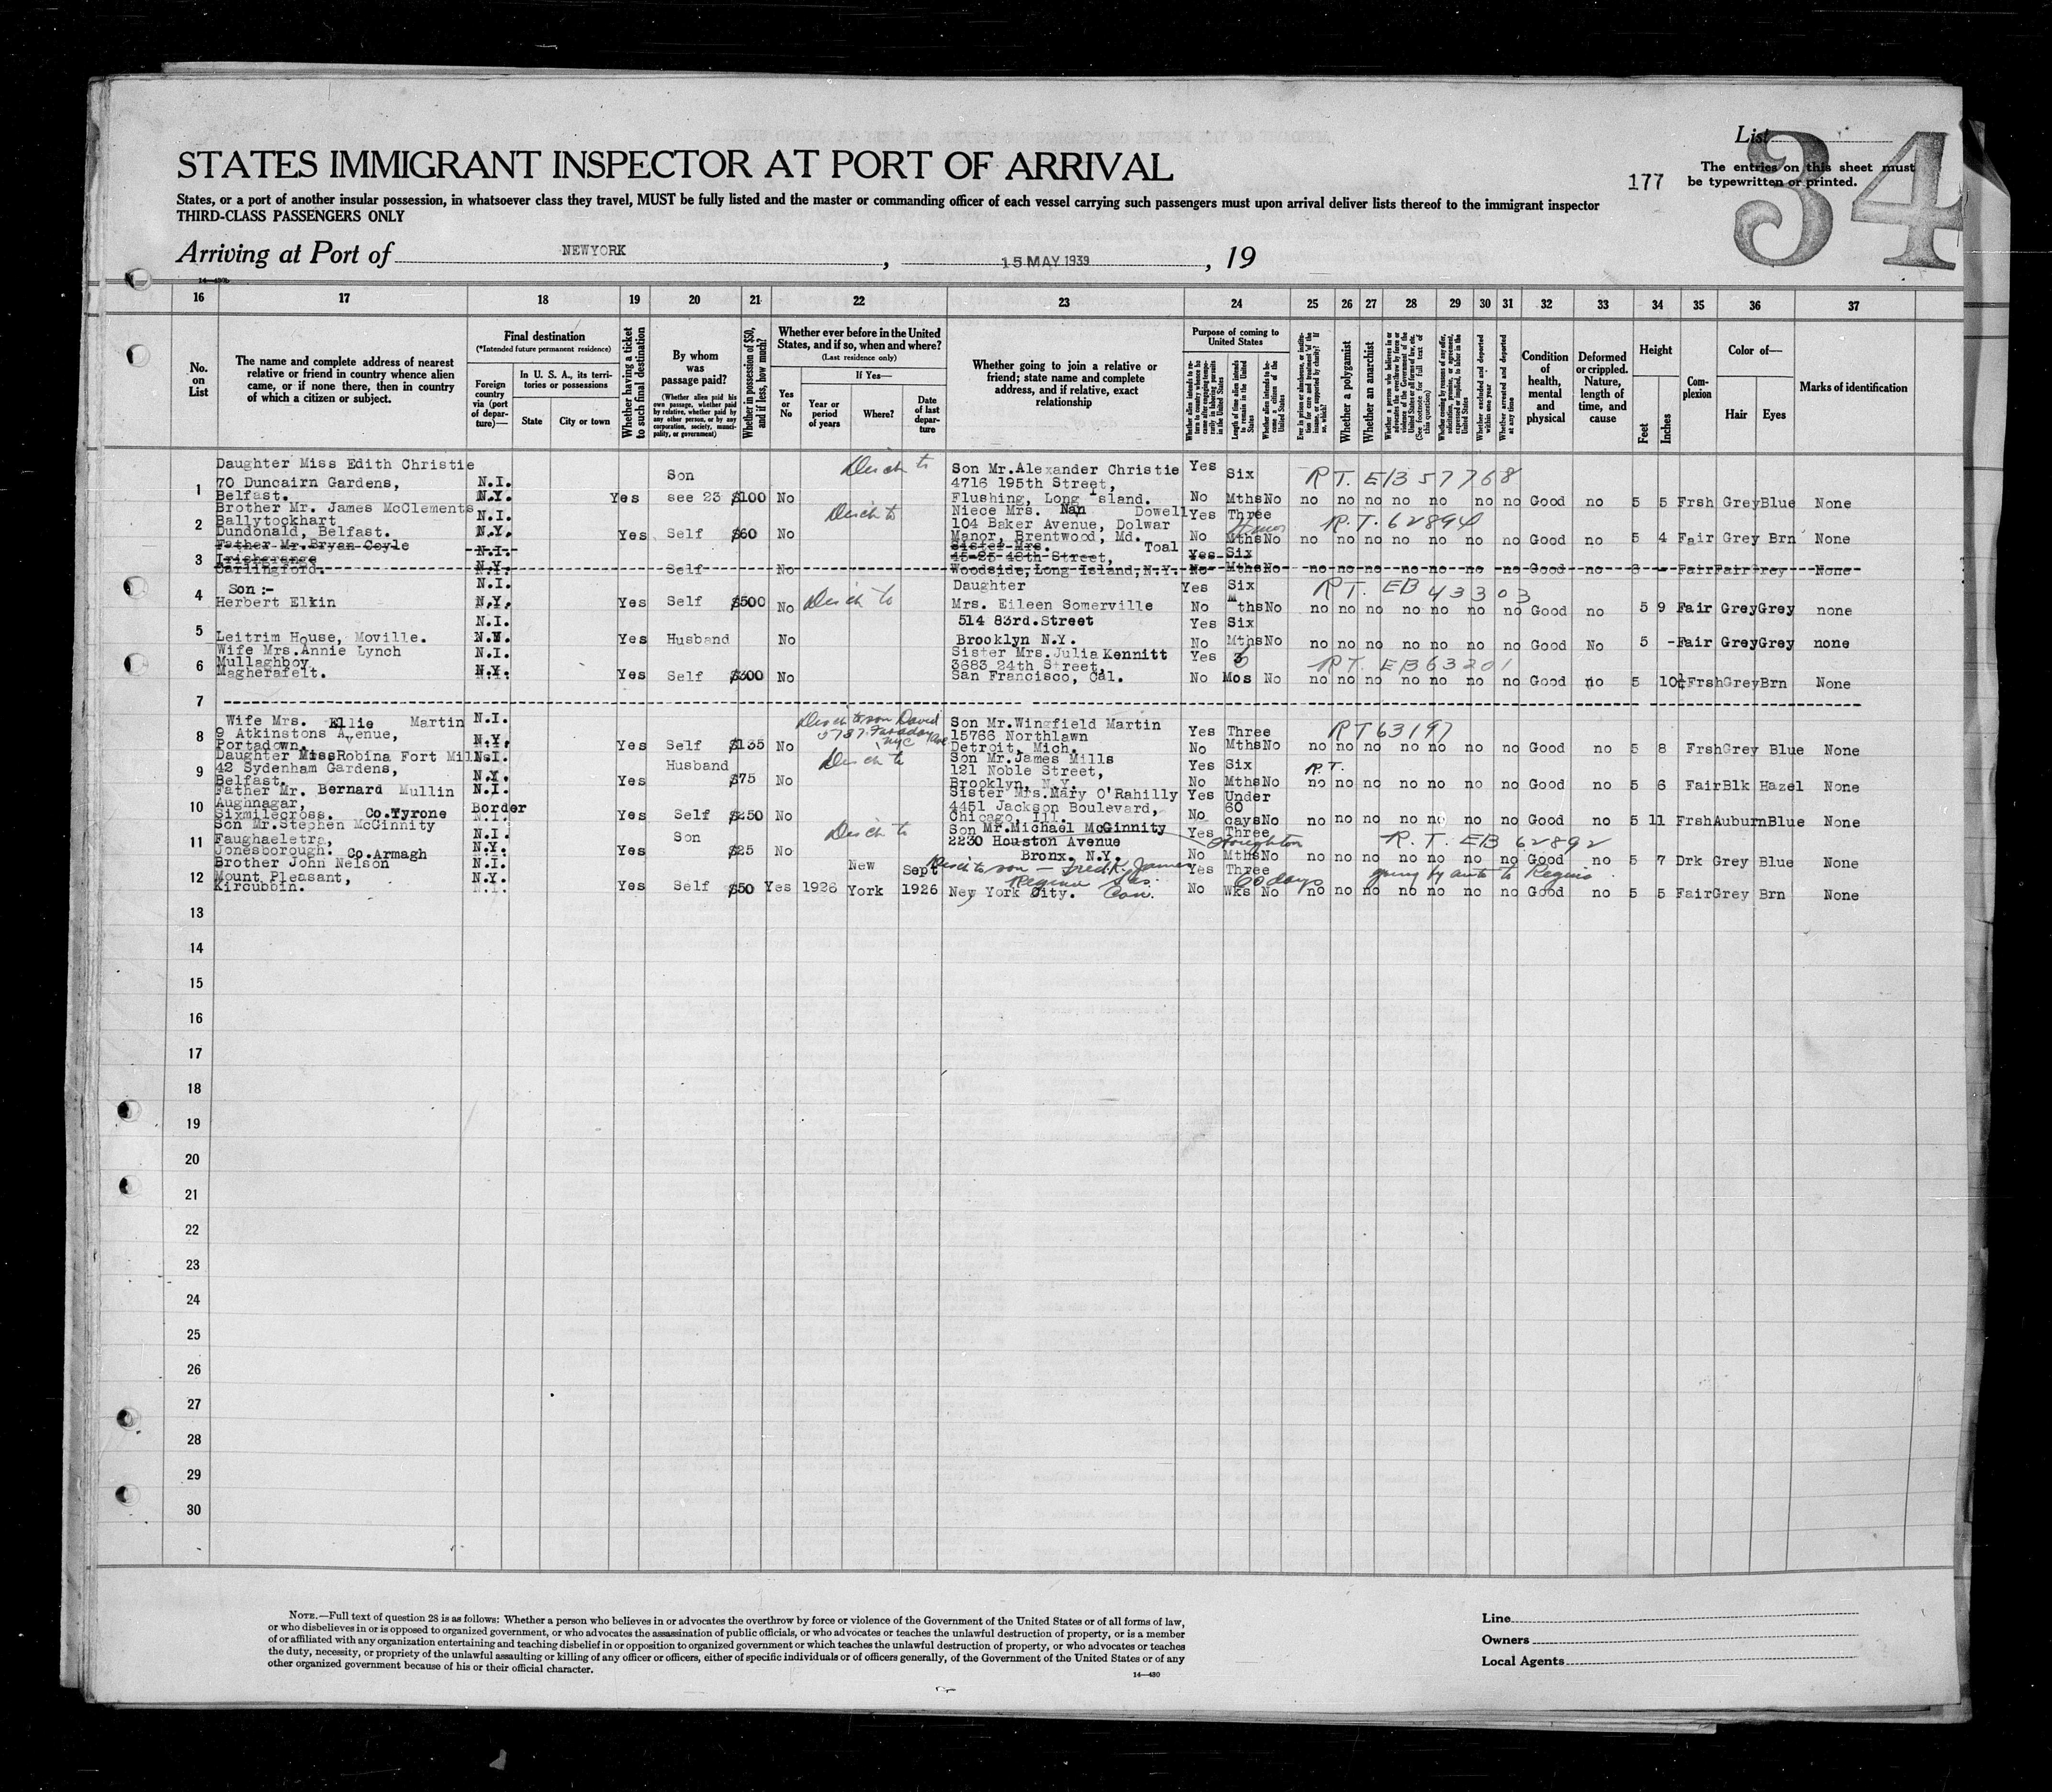 List
34
STATES IMMIGRANT INSPECTOR AT PORT OF ARRIVAL
177
The entries on this sheet must
be typewritten or printed.
States, or a port of another insular possession, in whatsoever class they travel, MUST be fully listed and the master or commanding officer of each vessel carrying such passengers must upon arrival deliver lists thereof to the immigrant inspector
THIRD-CLASS PASSENGERS ONLY
Arriving at Port of NEWYORK, 15 MAY 1939, 19
16 17 18 19 20 21 22 23 24 25 26 27 28 29 30 31 32 33 34 35 36 37
No. on List
The name and complete address of nearest relative or friend in country whence alien came, or if none there, then in country of which a citizen or subject.
Final destination
(*Intended future permanent residence)
Foreign country via (port of departure)—
In U. S. A., its territories or possessions
State
City or town
Whether having a ticket to such final destination
By whom was passage paid?
(Whether alien paid his own passage, whether paid by relative, whether paid by any other person, or by any corporation, society, municipality, or government)
Whether in possession of $50, and if less, how much?
Whether ever before in the United States, and if so, when and where?
(Last residence only)
Yes or No
If Yes—
Year or period of years
Where?
Date of last departure
Whether going to join a relative or friend; state name and complete address, and if relative, exact relationship
Purpose of coming to United States
Length of time alien intends to remain in the United States
Whether alien intends to become a citizen of the United States
Whether a polygamist
Whether an anarchist
Whether excluded and deported within one year
Whether arrested and deported at any time
Condition of health, mental and physical
Deformed or crippled. Nature, length of time, and cause
Height
Feet
Inches
Complexion
Color of—
Hair
Eyes
Marks of identification
1 Daughter Miss Edith Christie N.I. Son Son Mr.Alexander Christie Yes Six RT. EB 57768
70 Duncairn Gardens, 4716 195th Street,
Belfast. N.Y. Yes see 23 $100 No Flushing, Long Island. No Mths No no no no no no no no Good no 5 5 Frsh Grey Blue None
2 Brother Mr. James McClements N.I. Niece Mrs. Nan Dowell Yes Three R.T. 62894
Ballytockhart 104 Baker Avenue, Dolwar
Dundonald, Belfast. N.Y. Yes Self $60 No Manor, Brentwood, Md. No Mths No no no no no no no no Good no 5 4 Fair Grey Brn None
3 Father Mr.Bryan Coyle N.I. Sister Mrs. Toal Yes Six
Irishgrange 45-25 48th Street,
Carlingford. N.Y. Self No Woodside, Long Island, N.Y. No Mths No no no no no no no no Good no Fair Fair Grey None
4 Son :- N.I. Daughter Yes Six RT. EB 43303
Herbert Elkin N.Y. Yes Self $500 No Mrs. Eileen Somerville No Mths No no no no no no no no Good no 5 9 Fair Grey Grey none
5 N.I. 514 83rd.Street Yes Six
Leitrim House, Moville. N.Y. Yes Husband No Brooklyn N.Y. No Mths No no no no no no no no Good No 5 - Fair Grey Grey none
6 Wife Mrs.Annie Lynch N.I. Sister Mrs.Julia Kennitt Yes 6 RT. EB63201
Mullaghboy 3683 24th Street,
Magherafelt. N.Y. Yes Self $300 No San Francisco, Cal. No Mos No no no no no no no no Good no 5 10½ Frsh Grey Brn None
7
8 Wife Mrs. Ellie Martin N.I. Son Mr.Wingfield Martin Yes Three RT 63197
9 Atkinstons Avenue, 15766 Northlawn
Portadown. N.Y. Yes Self $135 No Detroit, Mich. No Mths No no no no no no no no Good no 5 8 Frsh Grey Blue None
9 Daughter Miss Robina Fort Mills N.I. Husband Son Mr.James Mills Yes Six R.T.
42 Sydenham Gardens, 121 Noble Street,
Belfast. N.Y. Yes $75 No Brooklyn, N.Y. No Mths No no no no no no no no Good no 5 6 Fair Blk Hazel None
10 Father Mr. Bernard Mullin N.I. Sister Mrs.Mary O'Rahilly Yes Under
Aughnagar, Border 4451 Jackson Boulevard, 60
Sixmilecross. Co.Tyrone N.I. Yes Self $250 No Chicago, Ill. No days No no no no no no no no Good no 5 11 Frsh Auburn Blue None
11 Son Mr.Stephen McGinnity N.I. Son Son Mr.Michael McGinnity Yes Three Houghton R.T. EB 62892
Faughaeletra, 2230 Houston Avenue
Jonesborough. Co.Armagh N.Y. Yes $25 No Bronx. N.Y. No Mths No no no no no no no no Good no 5 7 Drk Grey Blue None
12 Brother John Nelson N.I. New Sept Yes Three
Mount Pleasant, N.Y. 60 days going by auto to Regina
Kircubbin. N.I. Yes Self $50 Yes 1926 York 1926 New York City. No Wks No no no no no no no no Good no 5 5 Fair Grey Brn None
13
14
15
16
17
18
19
20
21
22
23
24
25
26
27
28
29
30
NOTE.—Full text of question 28 is as follows: Whether a person who believes in or advocates the overthrow by force or violence of the Government of the United States or of all forms of law,
or who disbelieves in or is opposed to organized government, or who advocates the assassination of public officials, or who advocates or teaches the unlawful destruction of property, or is a member
of or affiliated with any organization entertaining and teaching disbelief in or opposition to organized government or which teaches the unlawful destruction of property, or who advocates or teaches
the duty, necessity, or propriety of the unlawful assaulting or killing of any officer or officers, either of specific individuals or of officers generally, of the Government of the United States or of any
other organized government because of his or their official character.
14—430
Line
Owners
Local Agents